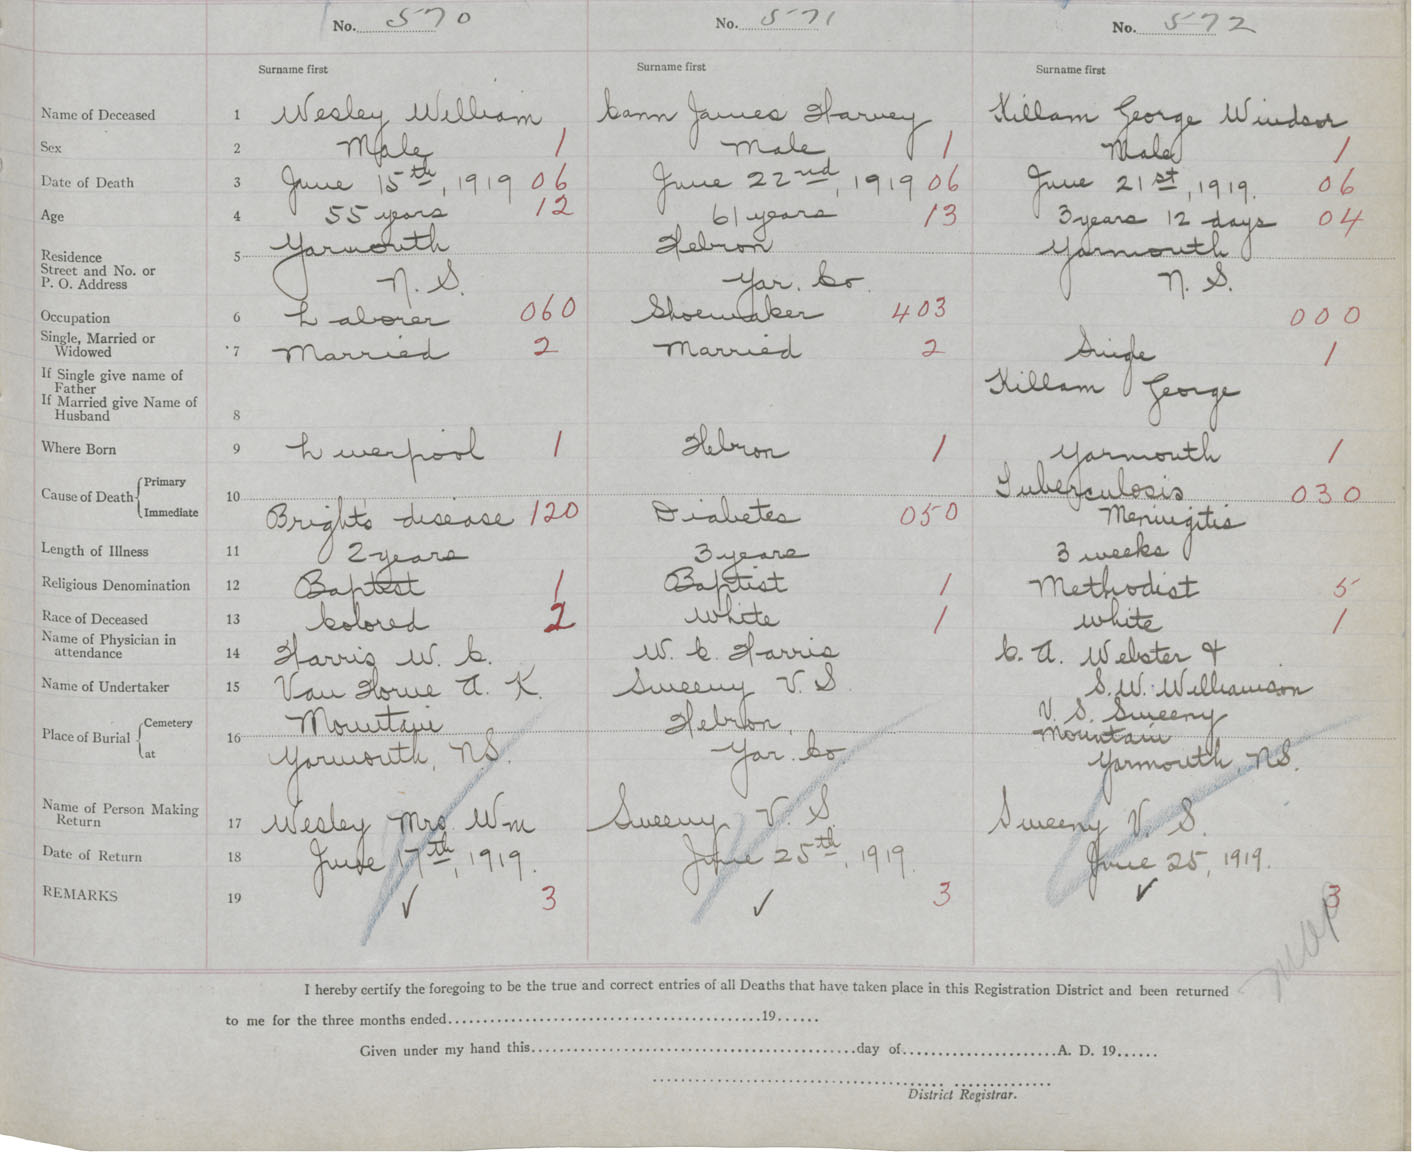 No. 570 No. 571 No. 572
Surname first Surname first Surname first
Name of Deceased 1 Wesley William Cann James Harvey Killam George Windsor
Sex 2 Male 1 Male 1 Male 1
Date of Death 3 June 15th, 1919 06 June 22nd, 1919 06 June 21st, 1919. 06
Age 4 55 years 12 61 years 13 3 years 12 days 04
Residence 5 Yarmouth Hebron Yarmouth
Street and No. or
P. O. Address N. S. Yar. Co. N. S.
Occupation 6 Laborer 060 Shoemaker 403 000
Single, Married or
Widowed 7 Married 2 Married 2 Single 1
If Single give name of
Father Killam George
If Married give Name of
Husband 8
Where Born 9 Liverpool 1 Hebron 1 Yarmouth 1
Cause of Death Primary 10 Tuberculosis 030
Immediate Brights disease 120 Diabetes 050 Meningitis
Length of Illness 11 2 years 3 years 3 weeks
Religious Denomination 12 Baptist 1 Baptist 1 Methodist 5
Race of Deceased 13 Colored 2 White 1 White 1
Name of Physician in
attendance 14 Harris W. C. W. C. Harris C. A. Webster &
Name of Undertaker 15 Van Horne A. K. Sweeny V. S. S. W. Williamson
V. S. Sweeny
Place of Burial Cemetery 16 Mountain Hebron, Mountain
at Yarmouth, N.S. Yar. Co. Yarmouth, N.S.
Name of Person Making
Return 17 Wesley Mrs. Wm Sweeny V. S. Sweeny V. S.
Date of Return 18 June 17th, 1919. June 25th, 1919. June 25, 1919.
REMARKS 19 ✓ 3 ✓ 3 ✓ 3
I hereby certify the foregoing to be the true and correct entries of all Deaths that have taken place in this Registration District and been returned
to me for the three months ended 19
Given under my hand this day of A. D. 19
District Registrar.